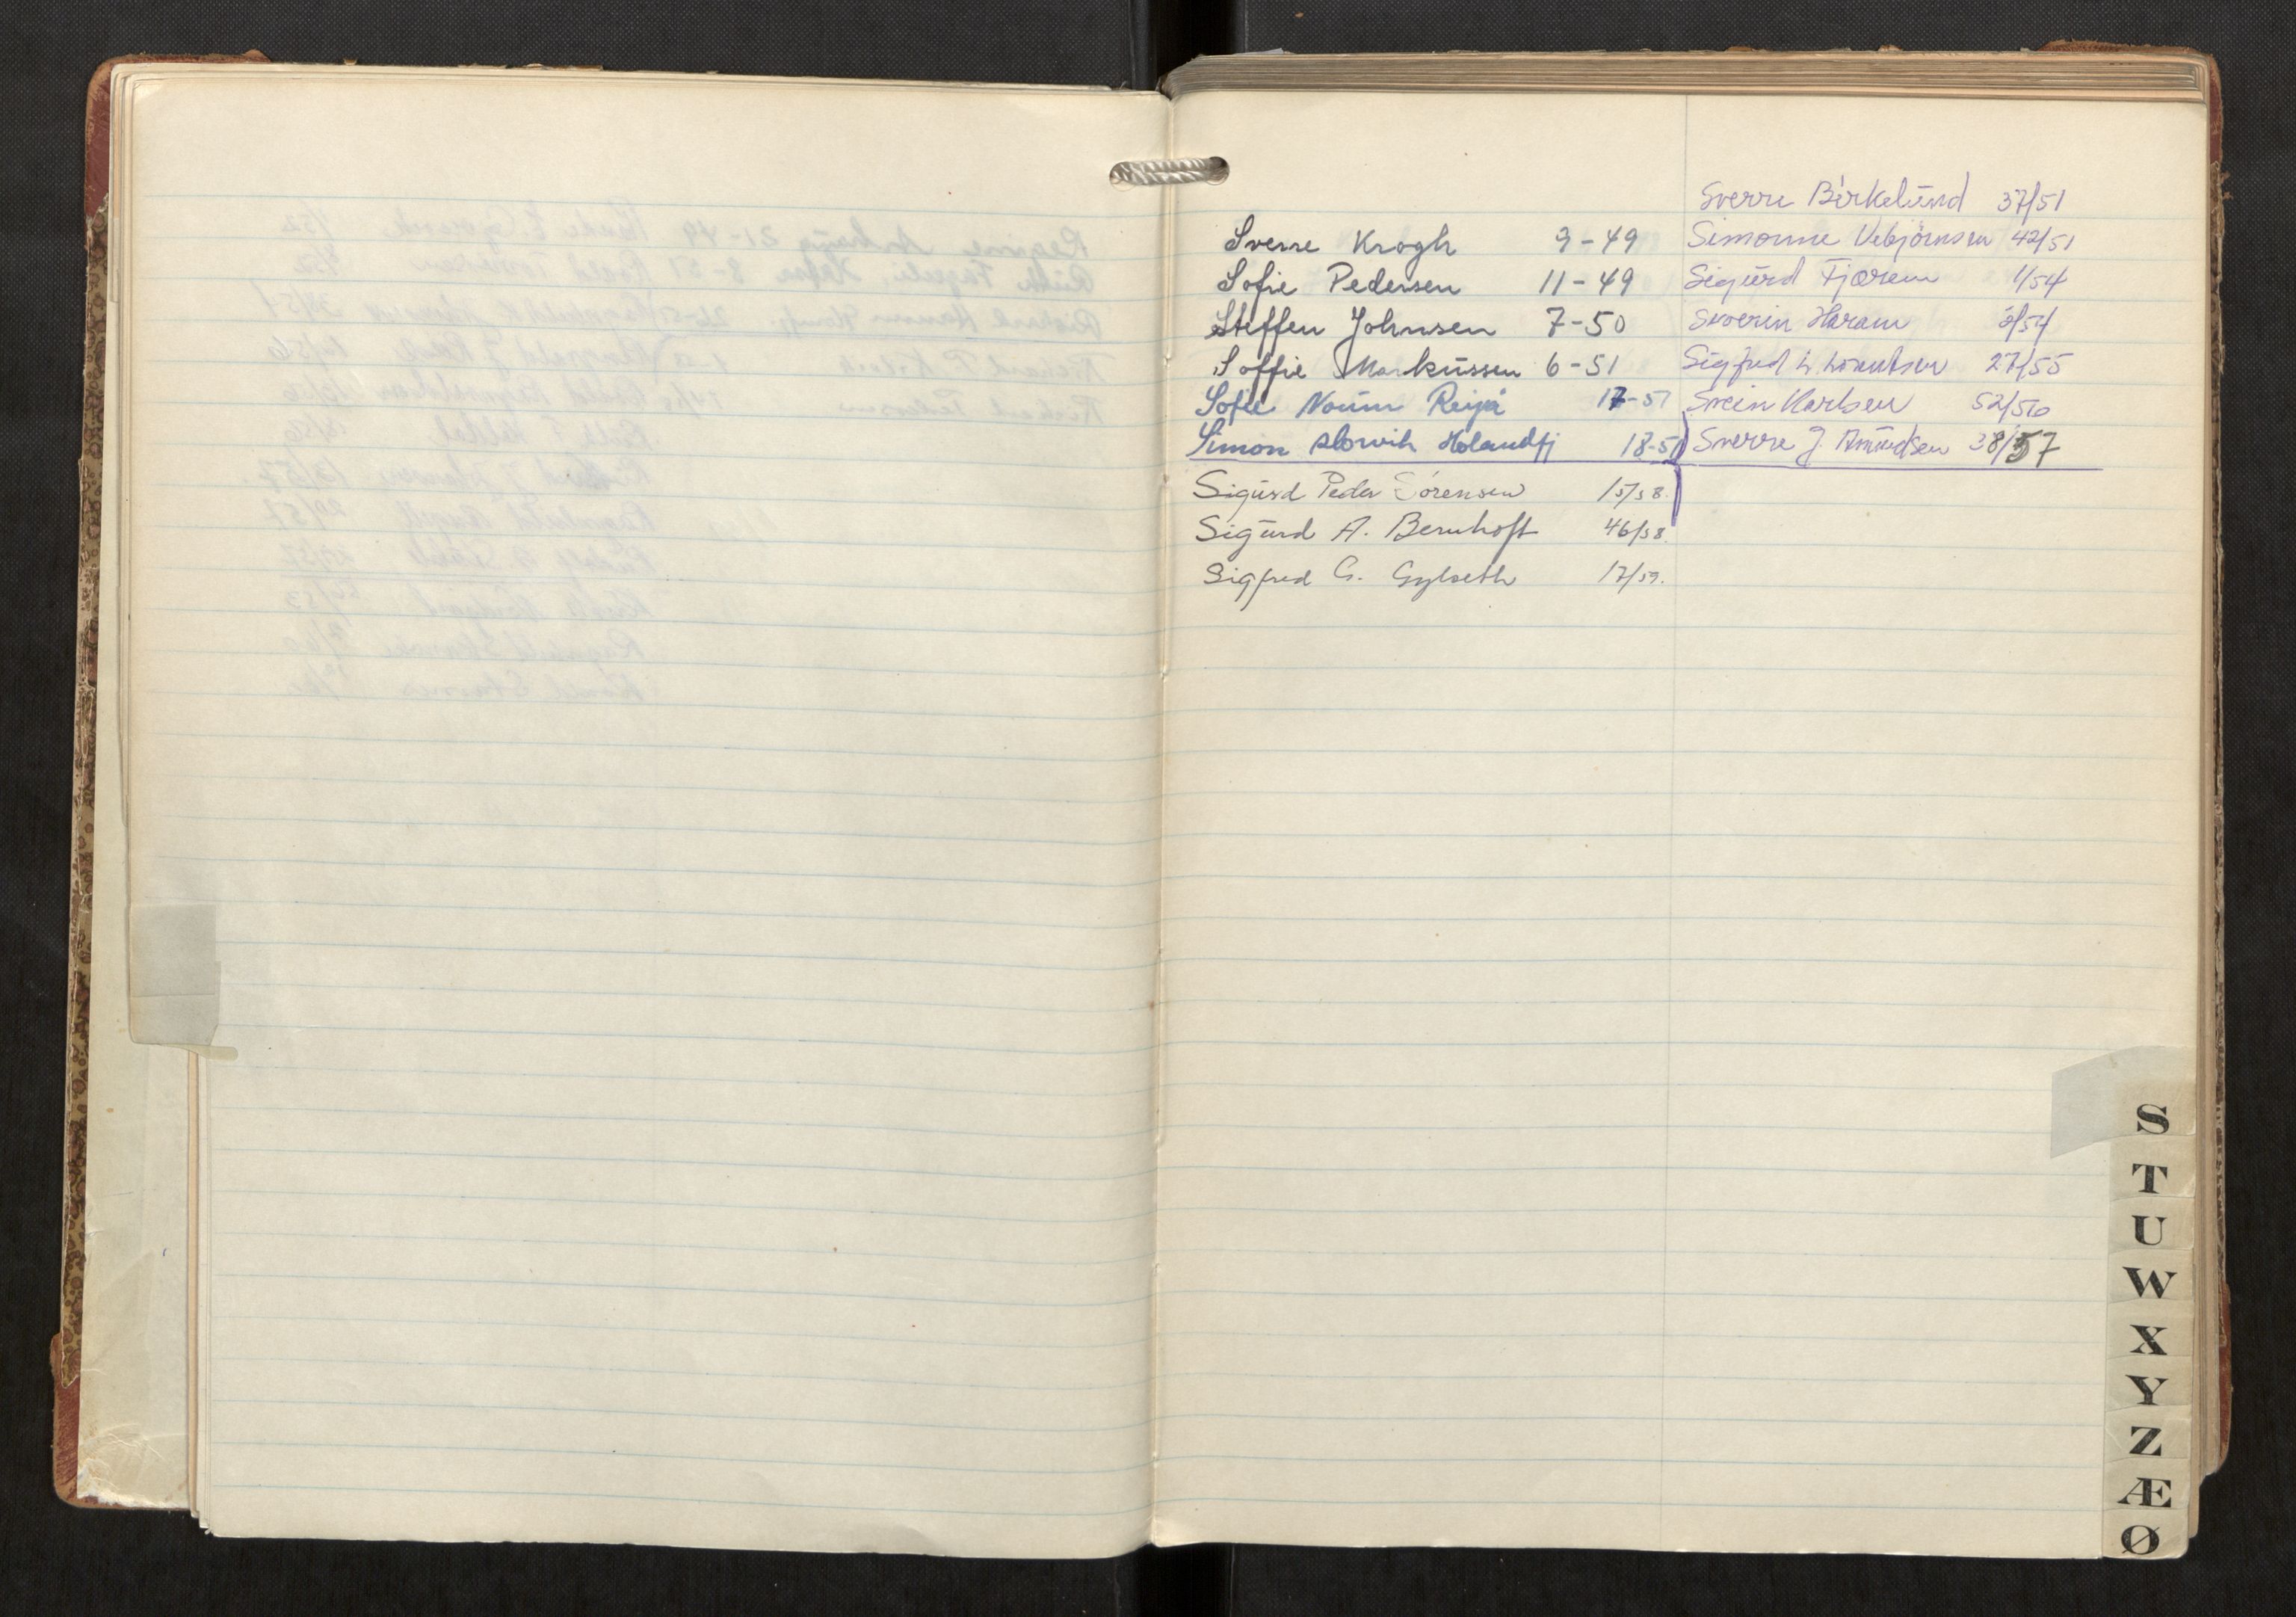 Sverre Krogh 9-49
Sofie Pedersen 11-49
Steffen Johnsen 7-50
Soffie Markussen 6-51
Sofie Reipå 17-51
Simon Holandfj 18-51
Sigurd Peder Sørensen 15/58.
Sigurd A. Bernhoft 46/58.
Sigfred G. Gylseth 17/59.
Sverre Birkelund 37/51
Simonne Vebjørnsen 42/51
Sigurd Fjærem 1/54
Severin Haram 2/54
Sigfred L. 27/55
Svein Karlsen 52/56
Sverre J. Amundsen 38/57
S
T
U
W
X
Y
Z
Æ
Ø